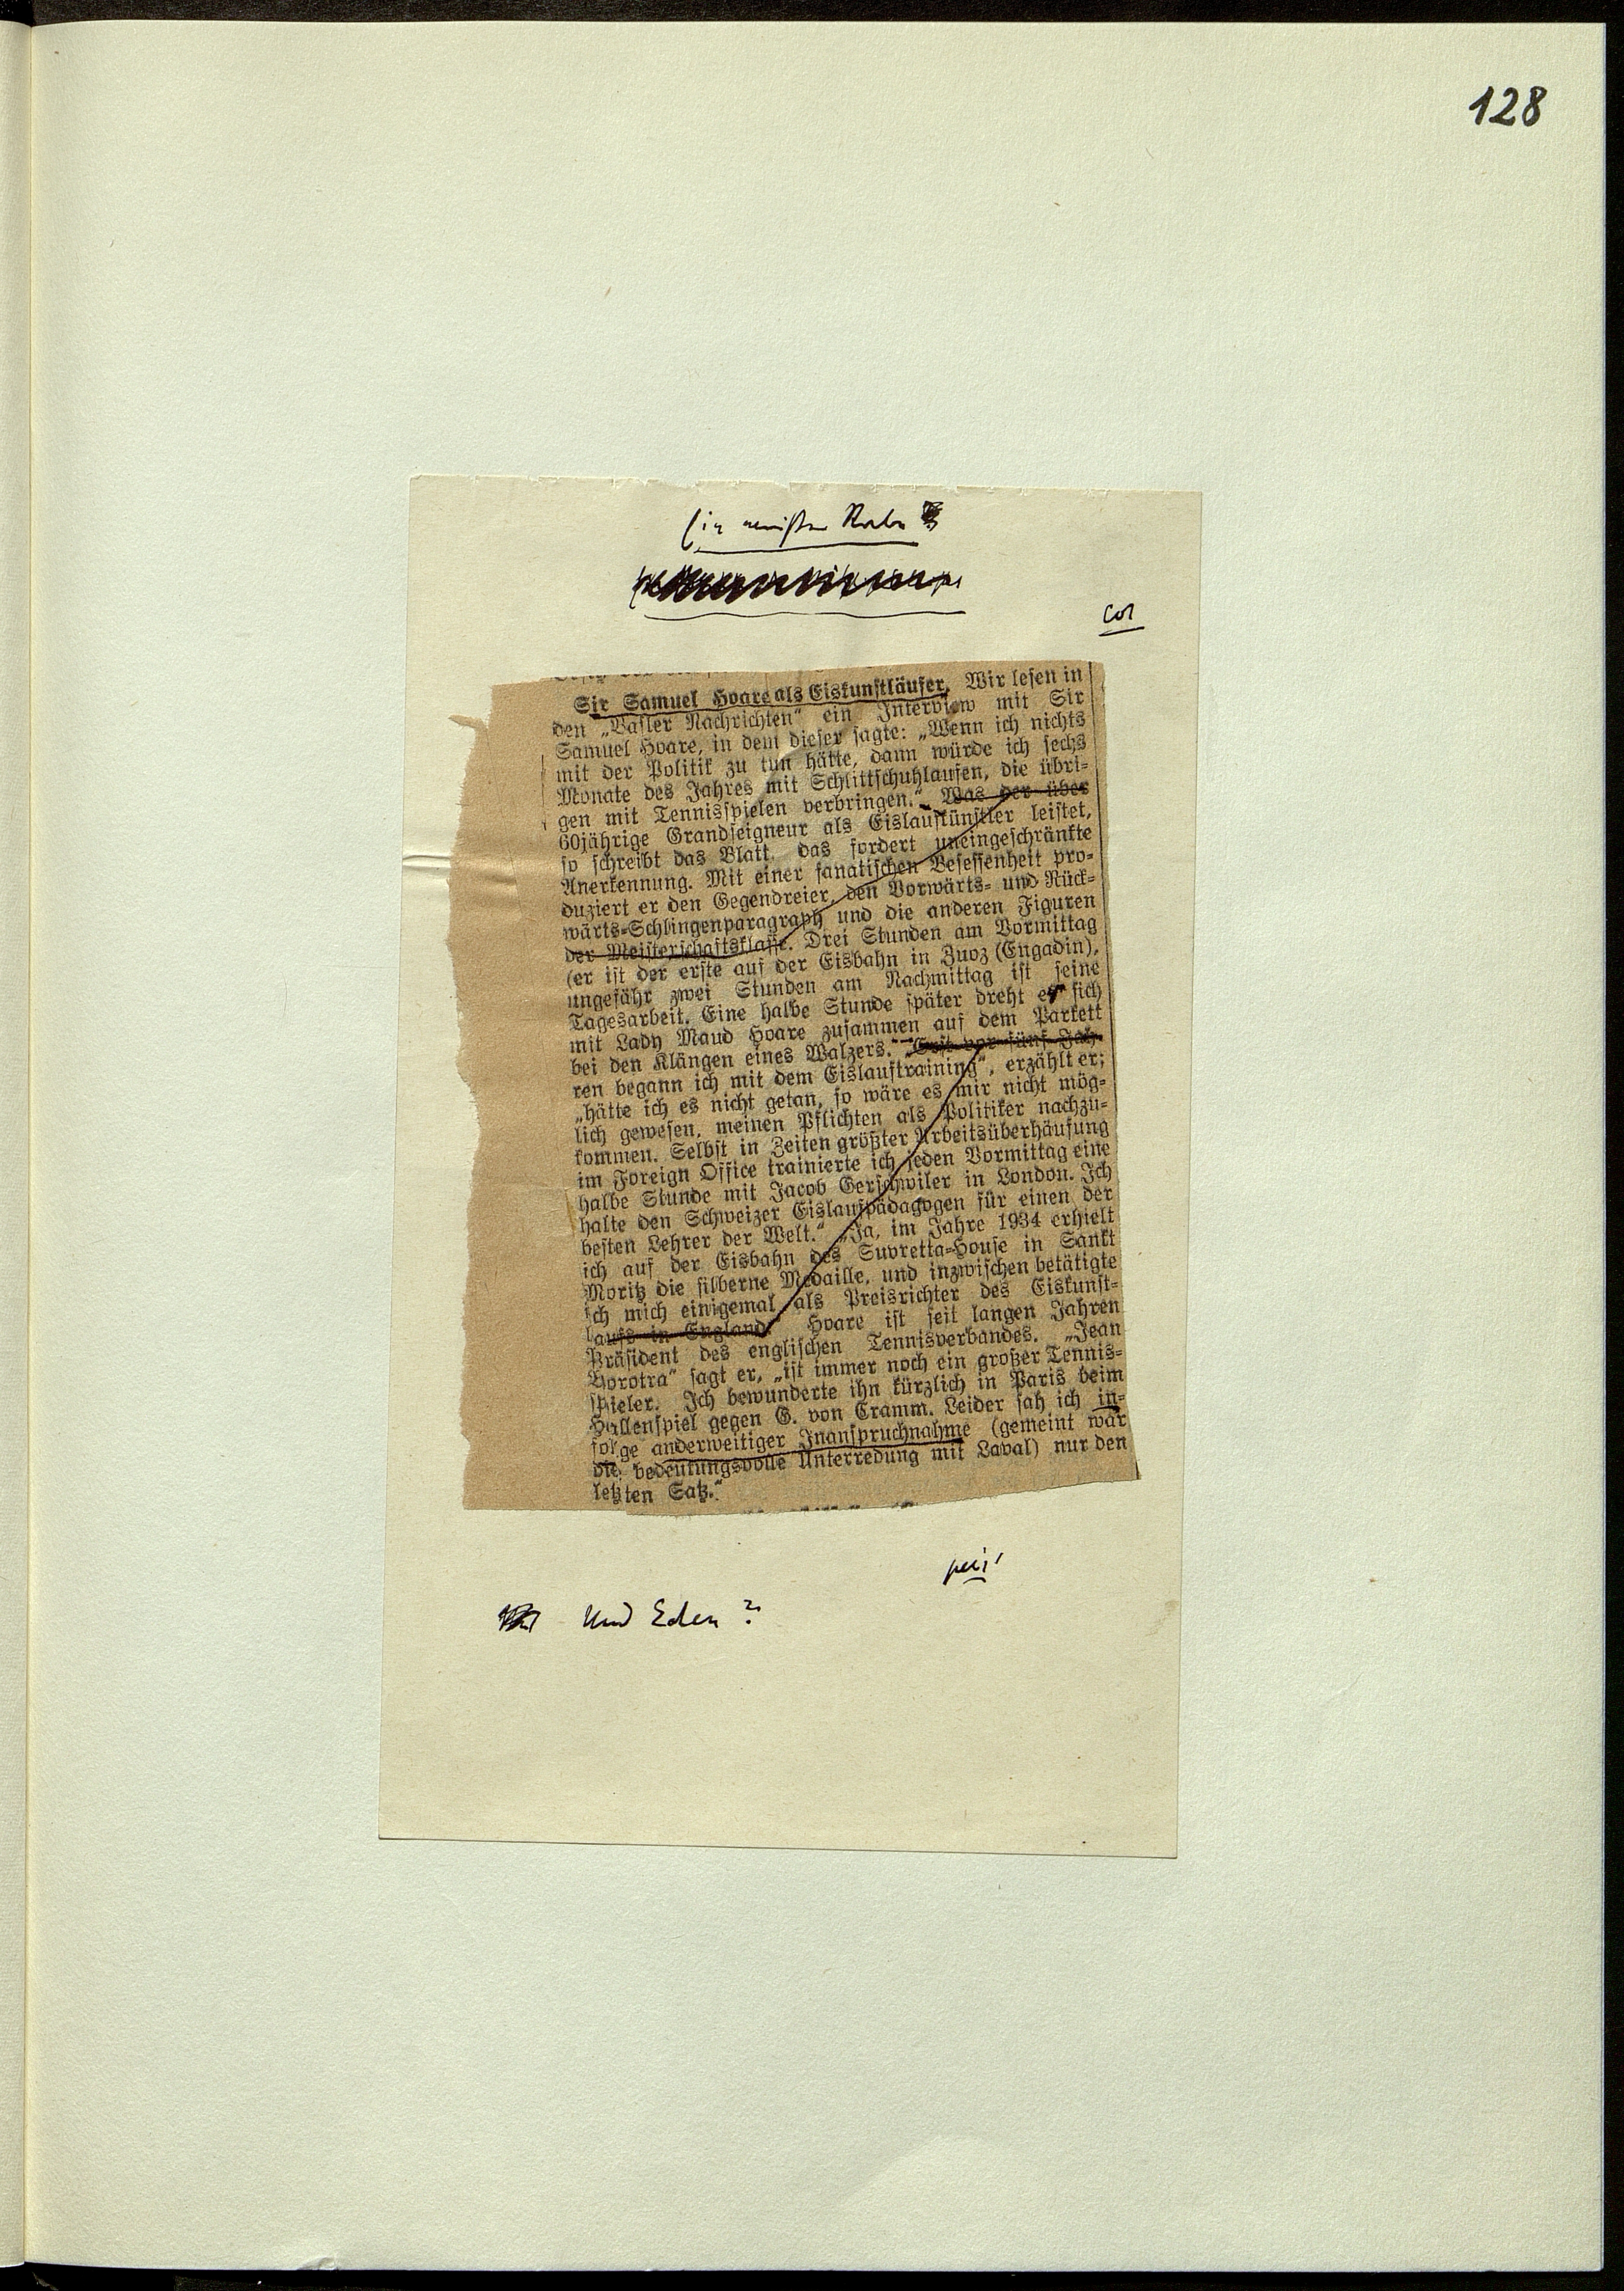 128
Ein
col
Sir Samuel Hoare als Eiskunstläufer. Wir lesen in
den „Basler Nachrichten“ ein Interview mit Sir
Samuel Hoare, in dem dieser sagte: „Wenn ich nichts
mit der Politik zu tun hätte, dann würde ich sechs
Monate des Jahres mit Schlittschuhlaufen, die übri-
gen mit Tennisspielen verbringen.“ Was der über
60jährige Grandseigneur als Eislaufkünstler leistet,
so schreibt das Blatt, das fordert uneingeschränkte
Anerkennung. Mit einer fanatischen Besessenheit pro-
duziert er den Gegendreier, den Vorwärts- und Rück-
wärts-Schlingenparagraph und die anderen Figuren
der Meisterschaftsklasse. Drei Stunden am Vormittag
(er ist der erste auf der Eisbahn in Zuoz (Engadin),
ungefähr zwei Stunden am Nachmittag ist seine
Tagesarbeit. Eine halbe Stunde später dreht er sich
mit Lady Maud Hoare zusammen auf dem Parkett
bei den Klängen eines Walzers. „Erst vor fünf Jah-
ren begann ich mit dem Eislauftraining“, erzählt er;
„hätte ich es nicht getan, so wäre es mir nicht mög-
lich gewesen, meinen Pflichten als Politiker nachzu-
kommen. Selbst in Zeiten größter Arbeitsüberhäufung
im Foreign Office trainierte ich jeden Vormittag eine
halbe Stunde mit Jacob Gerschwiler in London. Ich
halte den Schweizer Eislaufpädagogen für einen der
besten Lehrer der Welt.“ „Ja, im Jahre 1934 erhielt
ich auf der Eisbahn des Suvretta-House in Sankt
Moritz die silberne Medaille, und inzwischen betätigte
ich mich einigemal als Preisrichter des Eiskunst-
laufs in England.“ Hoare ist seit langen Jahren
Präsident des englischen Tennisverbandes. „Jean
Borotra“ sagt er, „ist immer noch ein großer Tennis-
spieler. Ich bewunderte ihn kürzlich in Paris beim
Hallenspiel gegen G. von Cramm. Leider sah ich in-
folge anderweitiger Inanspruchnahme (gemeint war
die bedeutungsvolle Unterredung mit Laval) nur den
letzten Satz.“
Und Eden?